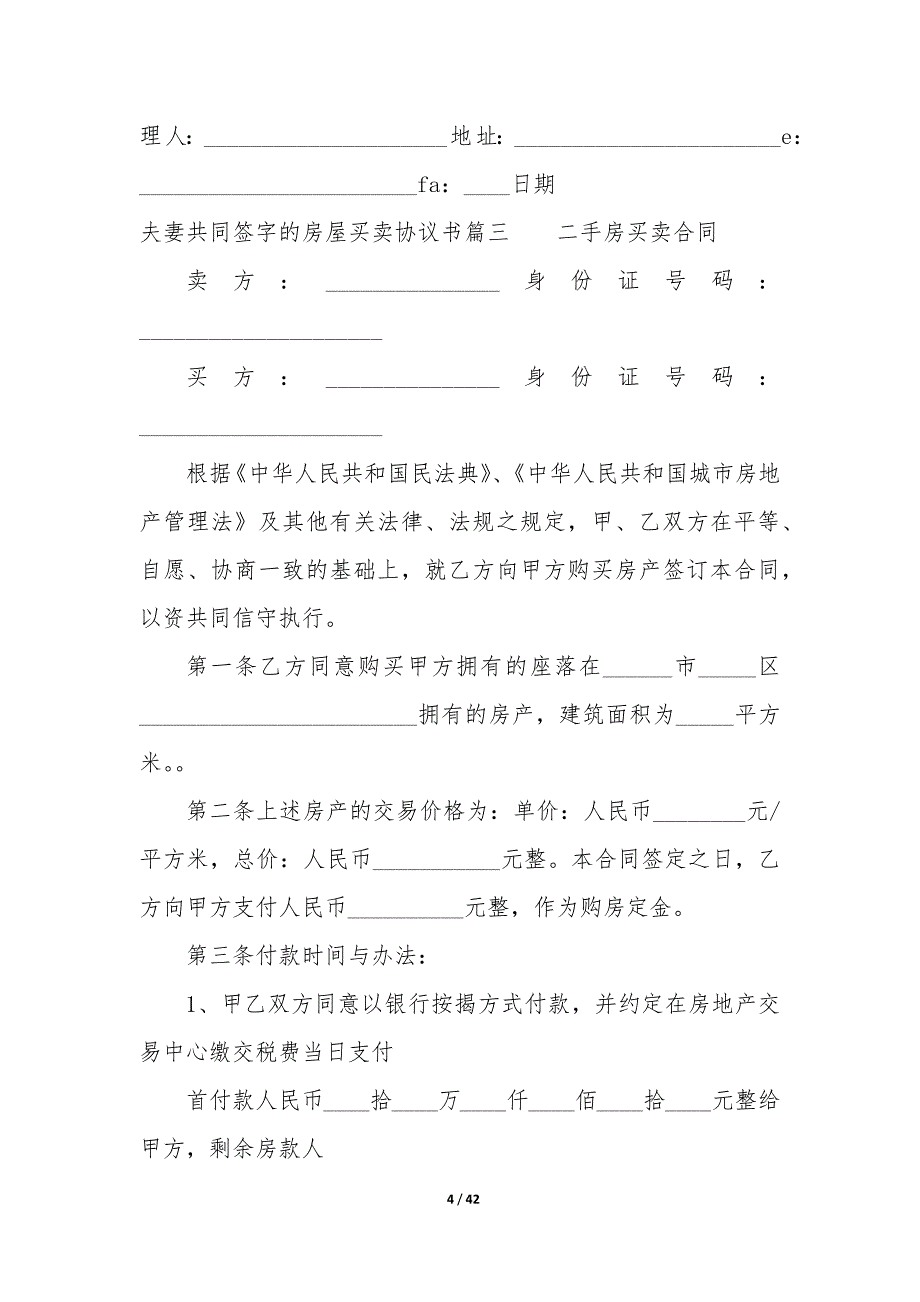 理人：_____________________地址：_______________________e：
________________________fa：____日期
夫妻共同签字的房屋买卖协议书篇三　　二手房买卖合同
卖方：_______________身份证号码：
_____________________
买方：_______________身份证号码：
_____________________
根据《中华人民共和国民法典》、《中华人民共和国城市房地
产管理法》及其他有关法律、法规之规定，甲、乙双方在平等、
自愿、协商一致的基础上，就乙方向甲方购买房产签订本合同，
以资共同信守执行。
第一条乙方同意购买甲方拥有的座落在______市_____区
________________________拥有的房产，建筑面积为_____平方
米。。
第二条上述房产的交易价格为：单价：人民币________元/
平方米，总价：人民币___________元整。本合同签定之日，乙
方向甲方支付人民币__________元整，作为购房定金。
第三条付款时间与办法：
1、甲乙双方同意以银行按揭方式付款，并约定在房地产交
易中心缴交税费当日支付
首付款人民币____拾____万____仟____佰____拾____元整给
甲方，剩余房款人
4 / 42